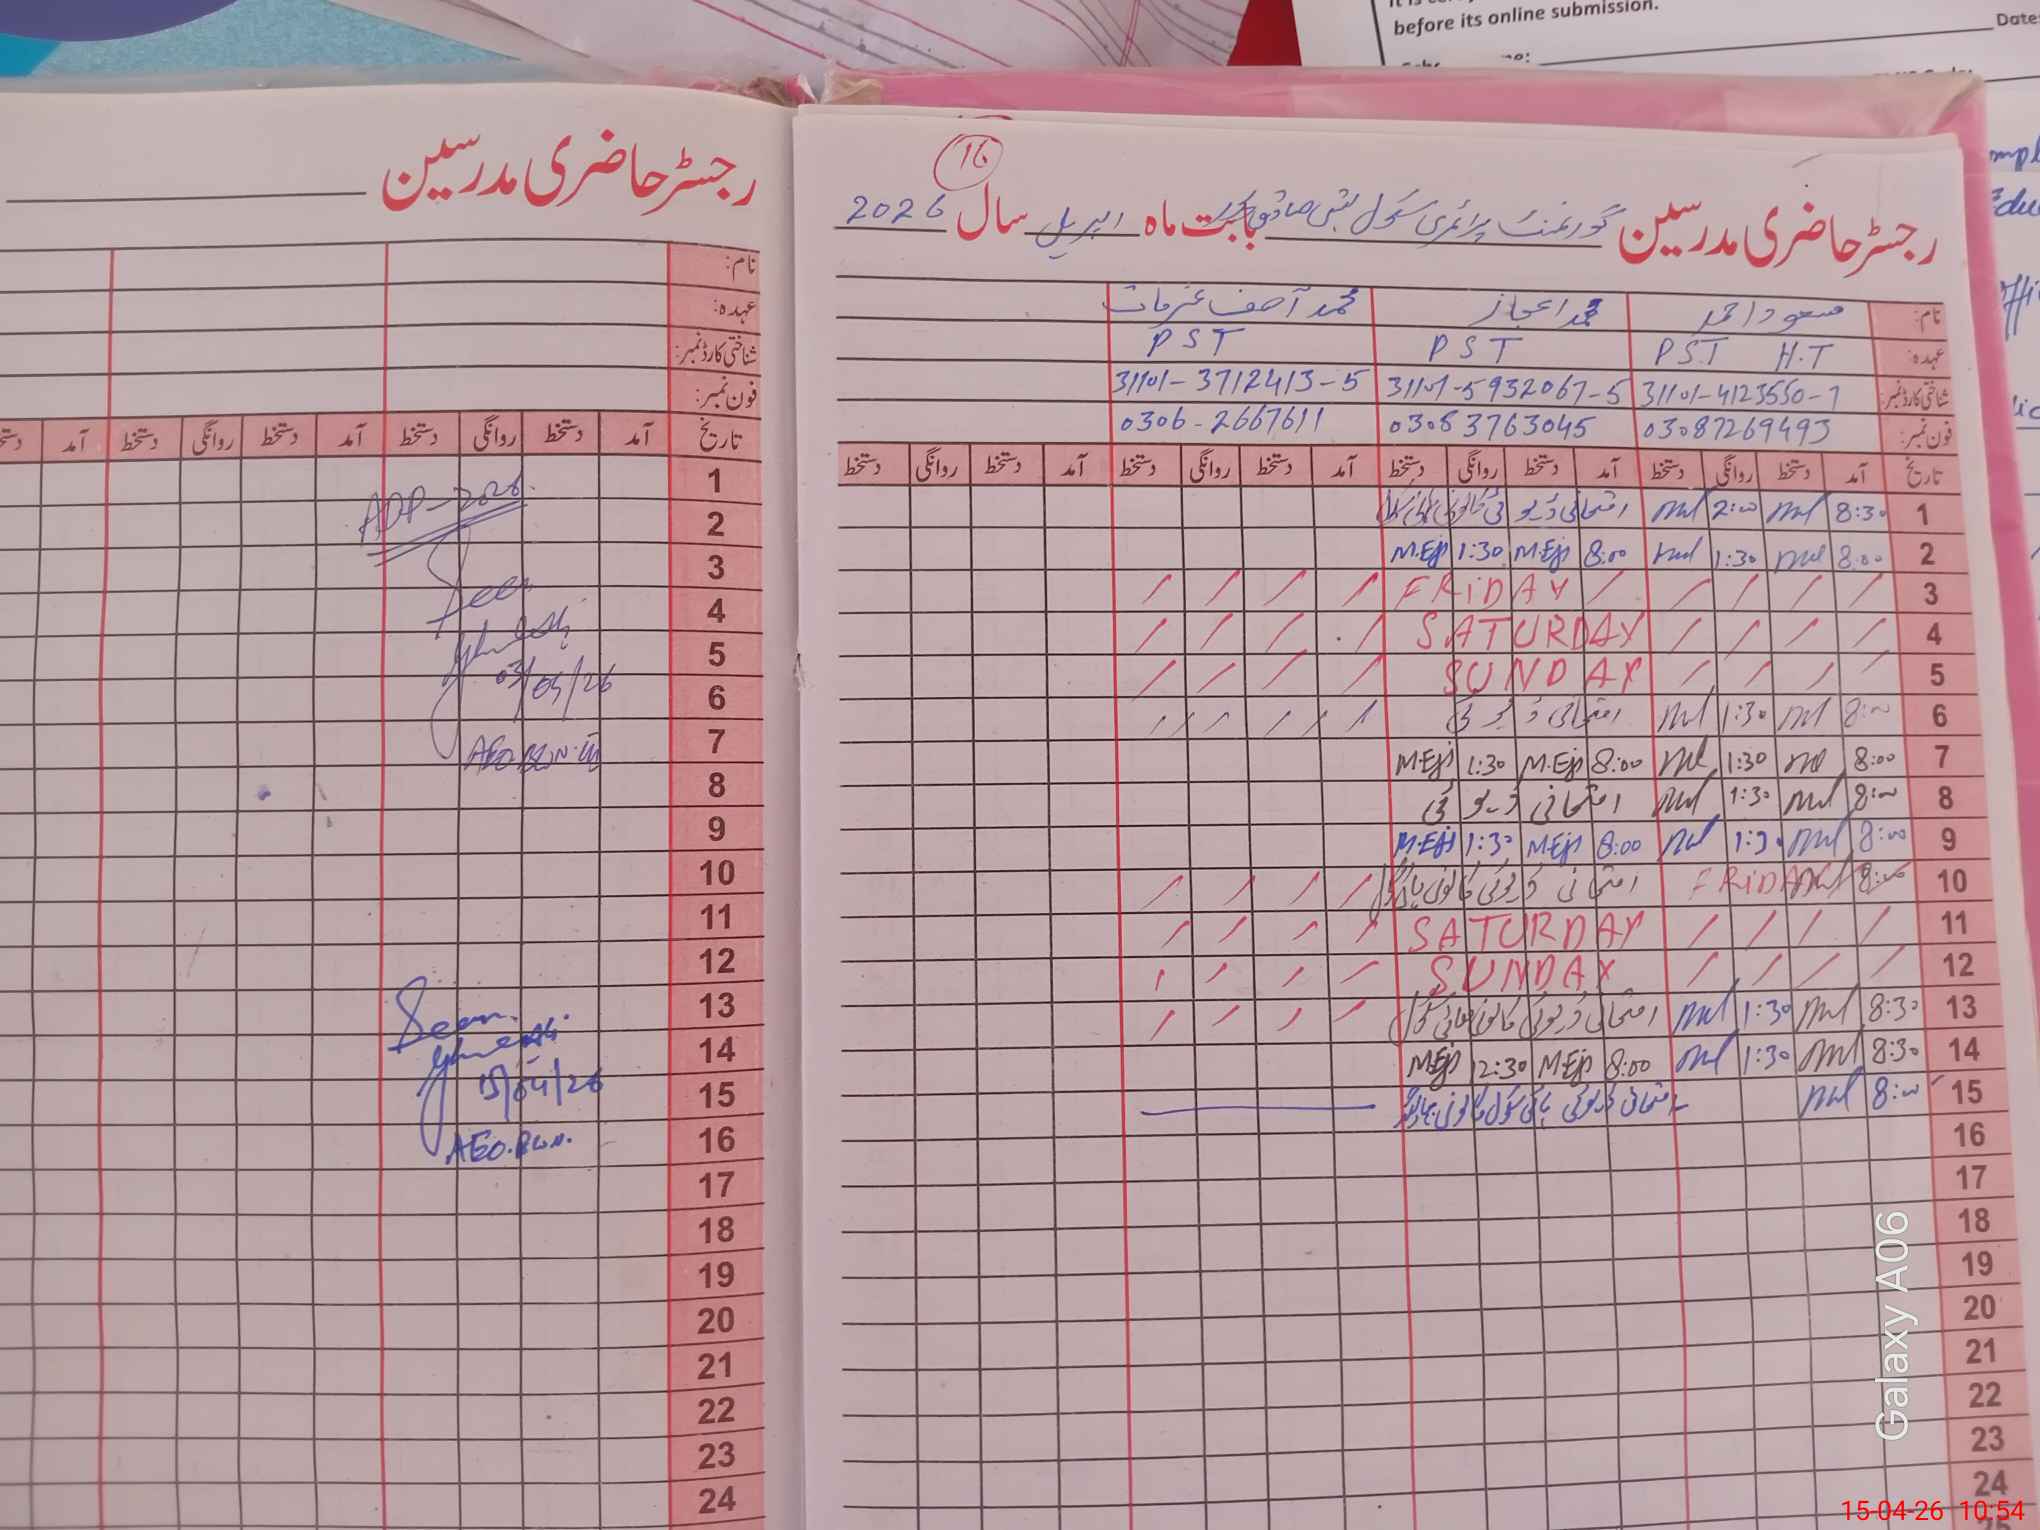 before its online submission.
Date:
رجسٹر حاضری مدرسین
نام:
عہدہ:
شناختی کارڈ نمبر:
فون نمبر:
تاریخ آمد دستخط روانگی دستخط آمد دستخط روانگی دستخط آمد
1
2
3
4
5
6
7
8
9
10
11
12
13
14
15
16
17
18
19
20
21
22
23
24
ADP-2026
Seen
03/04/26
AEO.BWN.III
Seen
15/04/26
AEO.BWN.
16
رجسٹر حاضری مدرسین گورنمنٹ پرائمری سکول بستی بابت ماہ اپریل سال 2026
نام: مسعود احمد محمد اعجاز محمد آصف عرفات
عہدہ: PST H.T PST PST
شناختی کارڈ نمبر: 31101-4123550-7 31101-5932067-5 31101-3712413-5
فون نمبر: 03087269493 03083763045 0306-2667611
تاریخ آمد دستخط روانگی دستخط آمد دستخط روانگی دستخط آمد دستخط روانگی دستخط آمد دستخط روانگی دستخط
1 8:30 2:00 امتحانی ڈیوٹی
2 8:00 1:30 8:00 M.Ejj 1:30 M.Ejj
3 FRIDAY
4 SATURDAY
5 SUNDAY
6 8:00 1:30 امتحانی ڈیوٹی
7 8:00 1:30 8:00 M.Ejj 1:30 M.Ejj
8 8:00 1:30 امتحانی ڈیوٹی
9 8:00 1:30 8:00 M.Ejj 1:30 M.Ejj
10 8:00 FRIDAY امتحانی ڈیوٹی
11 SATURDAY
12 SUNDAY
13 8:30 1:30 امتحانی ڈیوٹی
14 8:30 1:30 8:00 M.Ejj 12:30 M.Ejj
15 8:00 امتحانی ڈیوٹی
16
17
18
19
20
21
22
23
24
25
Galaxy A06
15-04-26 10:54